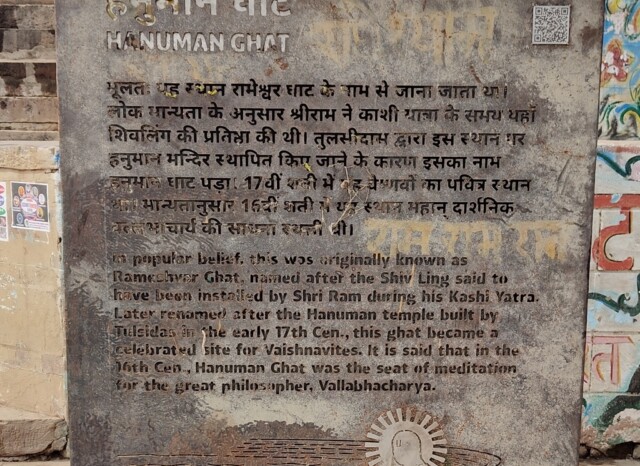 हनुमान घाट
HANUMAN GHAT
मूलतः यह स्थान रामेश्वर घाट के नाम से जाना जाता था।
लोक मान्यता के अनुसार श्रीराम ने काशी यात्रा के समय यहाँ
शिवलिंग की प्रतिष्ठा की थी। तुलसीदास द्वारा इस स्थान पर
हनुमान मन्दिर स्थापित किए जाने के कारण इसका नाम
हनुमान घाट पड़ा। 17वीं शती में यह वैष्णवों का पवित्र स्थान
था। मान्यतानुसार 16वीं शती में यह स्थान महान् दार्शनिक
वल्लभाचार्य की साधना स्थली थी।
In popular belief, this was originally known as
Rameshvar Ghat, named after the Shiv Ling said to
have been installed by Shri Ram during his Kashi Yatra.
Later renamed after the Hanuman temple built by
Tulsidas in the early 17th Cen., this ghat became a
celebrated site for Vaishnavites. It is said that in the
16th Cen., Hanuman Ghat was the seat of meditation
for the great philosopher, Vallabhacharya.